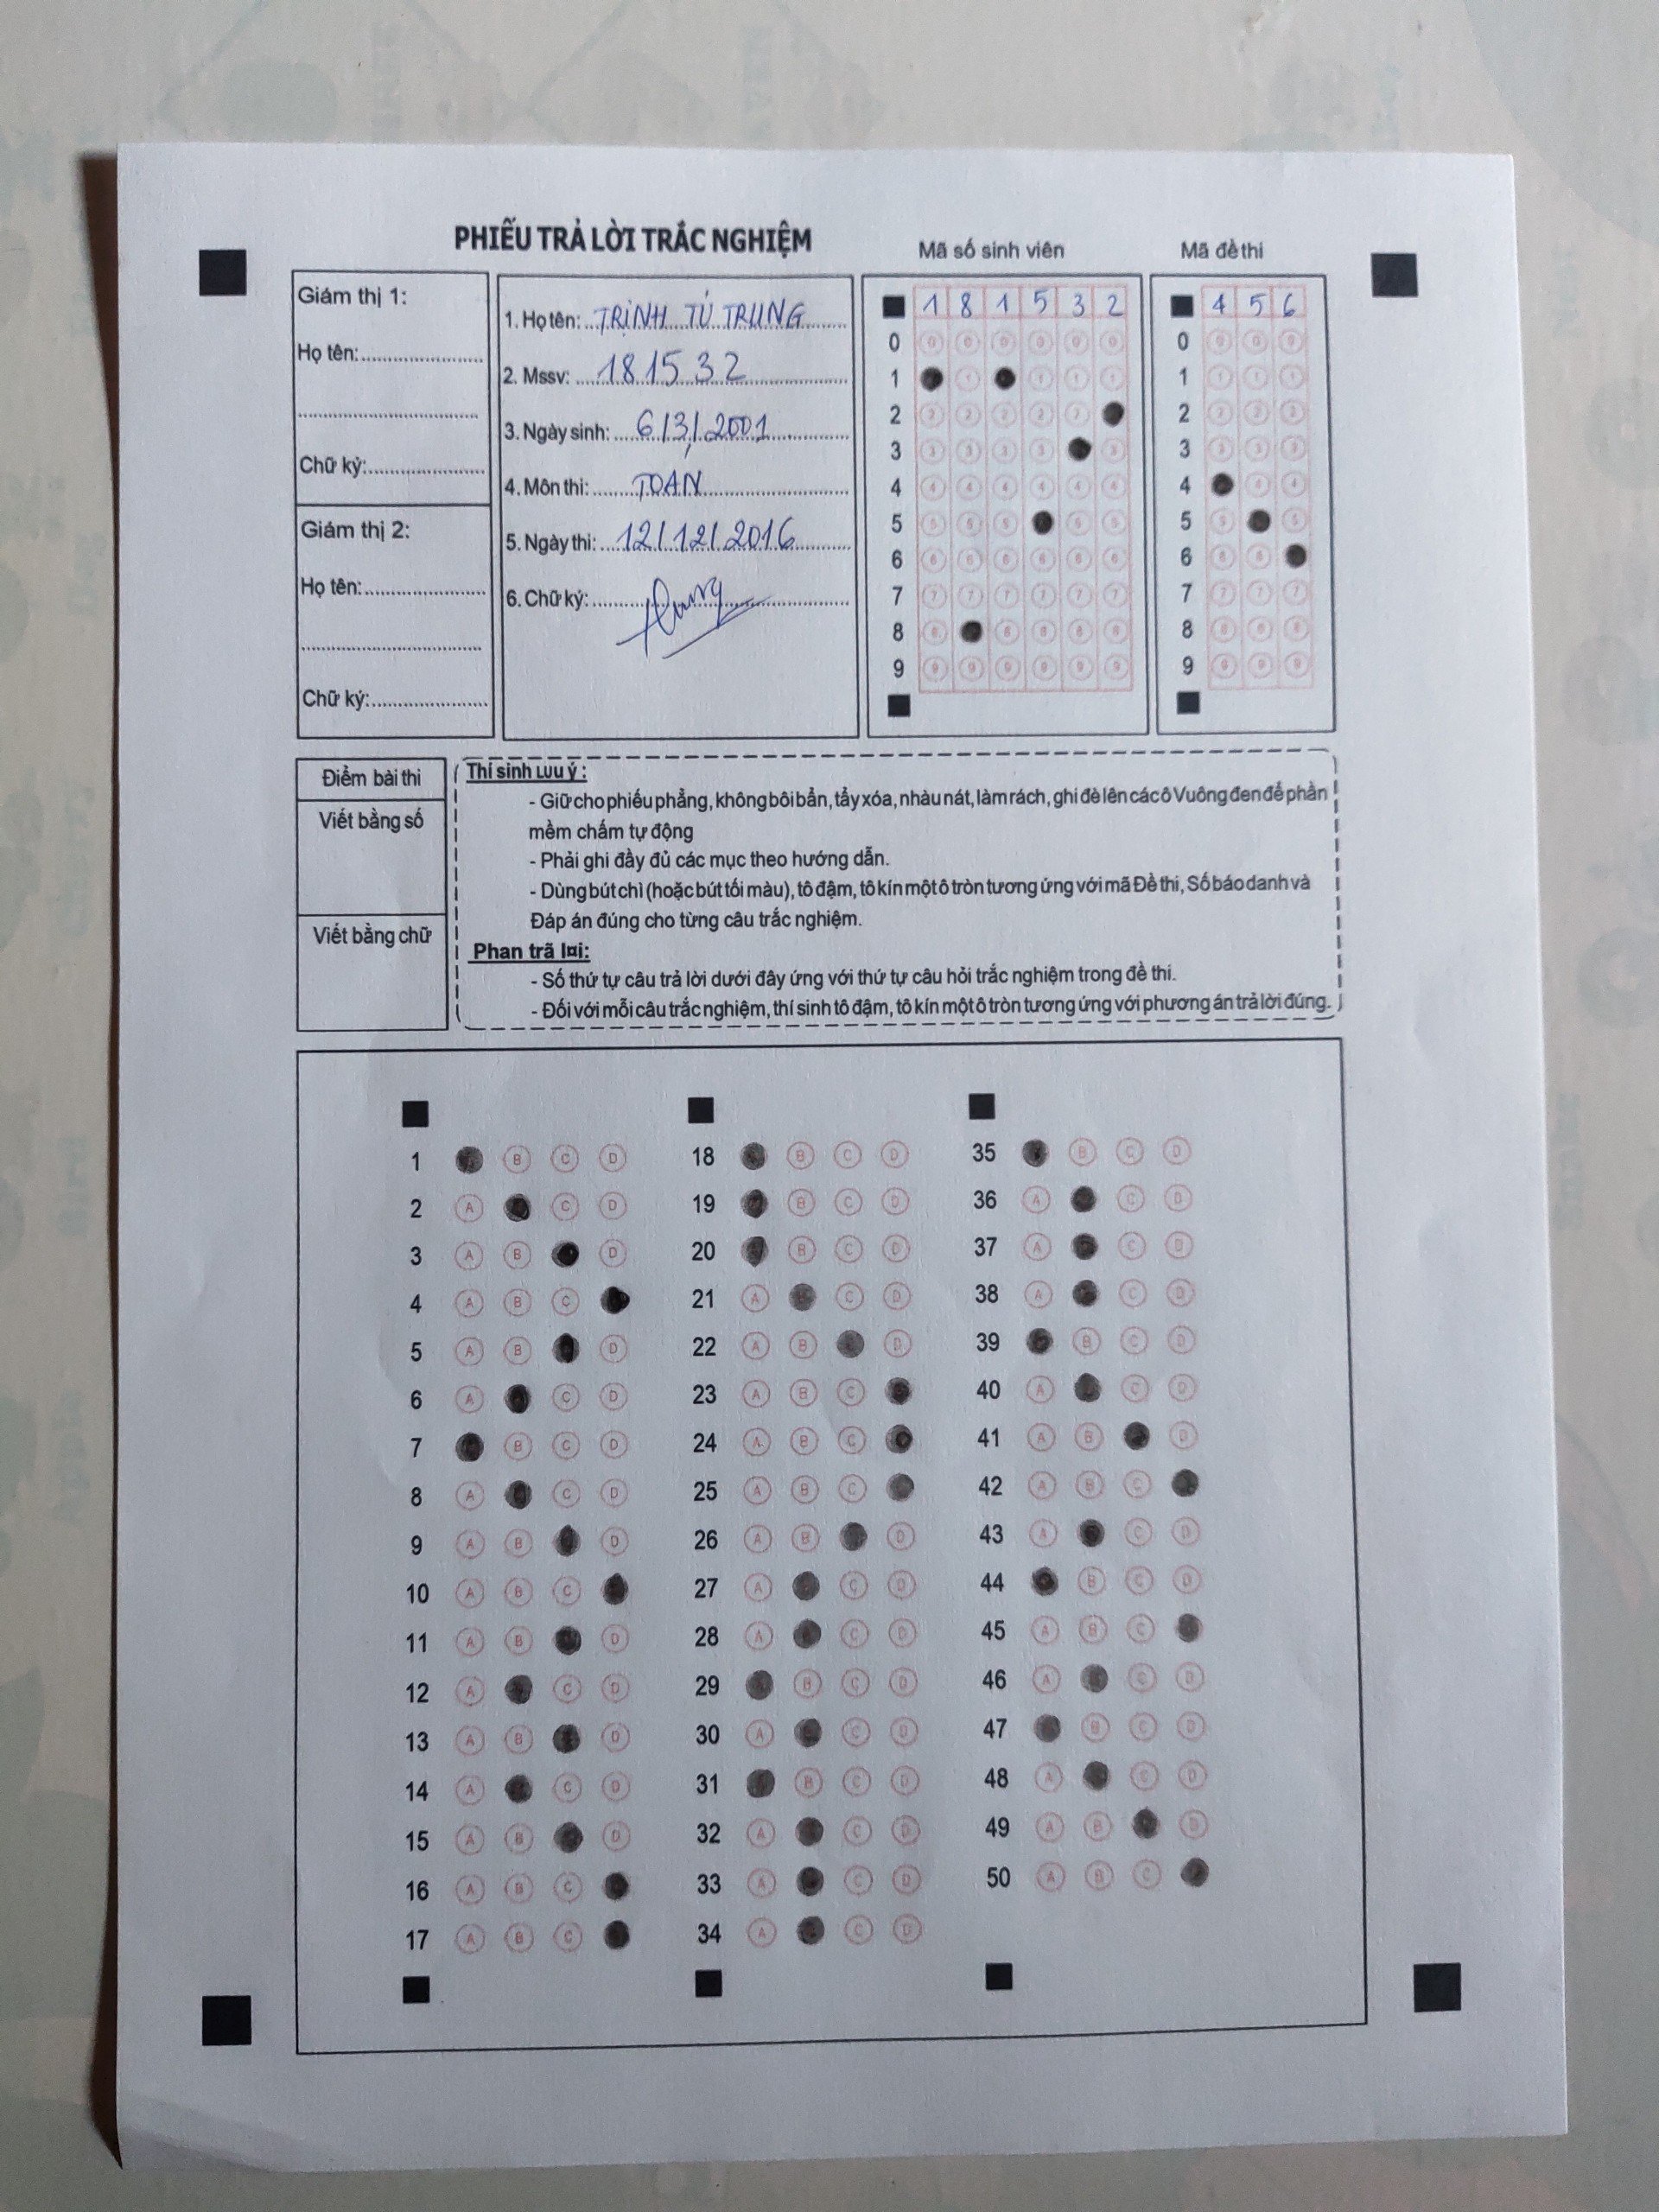 PHIẾU TRẢ LỜI TRẮC NGHIỆM
Mã số sinh viên
Mã đề thi
Giám thị 1:
Họ tên:
Chữ ký:
Giám thị 2:
Họ tên:
Chữ ký:
1. Họ tên: TRỊNH TÚ TRUNG
2. Mssv: 181532
3. Ngày sinh: 6/3/2001
4. Môn thi: TOÁN
5. Ngày thi: 12/12/2016
6. Chữ ký:
1 8 1 5 3 2
0 0 0 0 0 0 0
1 1 1 1 1
2 2 2 2 2 2
3 3 3 3 3 3
4 4 4 4 4 4 4
5 5 5 5 5 5
6 6 6 6 6 6 6
7 7 7 7 7 7 7
8 8 8 8 8 8
9 9 9 9 9 9 9
4 5 6
0 0 0 0
1 1 1 1
2 2 2 2
3 3 3 3
4 4 4
5 5 5
6 6 6
7 7 7 7
8 8 8 8
9 9 9 9
Điểm bài thi
Viết bằng số
Viết bằng chữ
Thí sinh Lưu ý :
- Giữ cho phiếu phẳng, không bôi bẩn, tẩy xóa, nhàu nát, làm rách, ghi đè lên các ô Vuông đen để phần
mềm chấm tự động
- Phải ghi đầy đủ các mục theo hướng dẫn.
- Dùng bút chì (hoặc bút tối màu), tô đậm, tô kín một ô tròn tương ứng với mã Đề thi, Số báo danh và
Đáp án đúng cho từng câu trắc nghiệm.
Phan trã l¤i:
- Số thứ tự câu trả lời dưới đây ứng với thứ tự câu hỏi trắc nghiệm trong đề thi.
- Đối với mỗi câu trắc nghiệm, thí sinh tô đậm, tô kín một ô tròn tương ứng với phương án trả lời đúng.
1 B C D
2 A C D
3 A B D
4 A B C
5 A B D
6 A C D
7 B C D
8 A C D
9 A B D
10 A B C
11 A B D
12 A C D
13 A B D
14 A C D
15 A B D
16 A B C
17 A B C
18 B C D
19 B C D
20 B C D
21 A C D
22 A B D
23 A B C
24 A B C
25 A B C
26 A B D
27 A C D
28 A C D
29 B C D
30 A C D
31 B C D
32 A C D
33 A C D
34 A C D
35 B C D
36 A C D
37 A C D
38 A C D
39 B C D
40 A C D
41 A B D
42 A B C
43 A C D
44 B C D
45 A B C
46 A C D
47 B C D
48 A C D
49 A B D
50 A B C